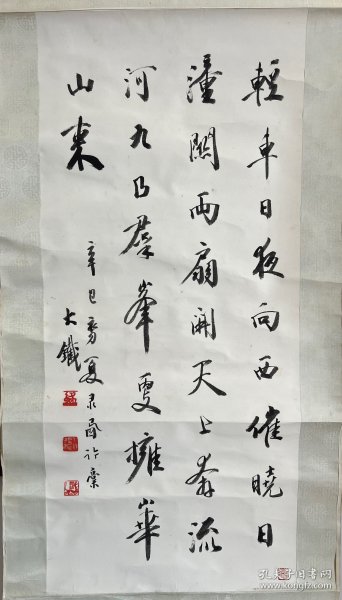 輕車日夜向西催曉日
潼關兩扇開天上奔流
河九曲群峯更擁華
山來
辛巳夏录旧作
大鐵
孔夫子旧书网